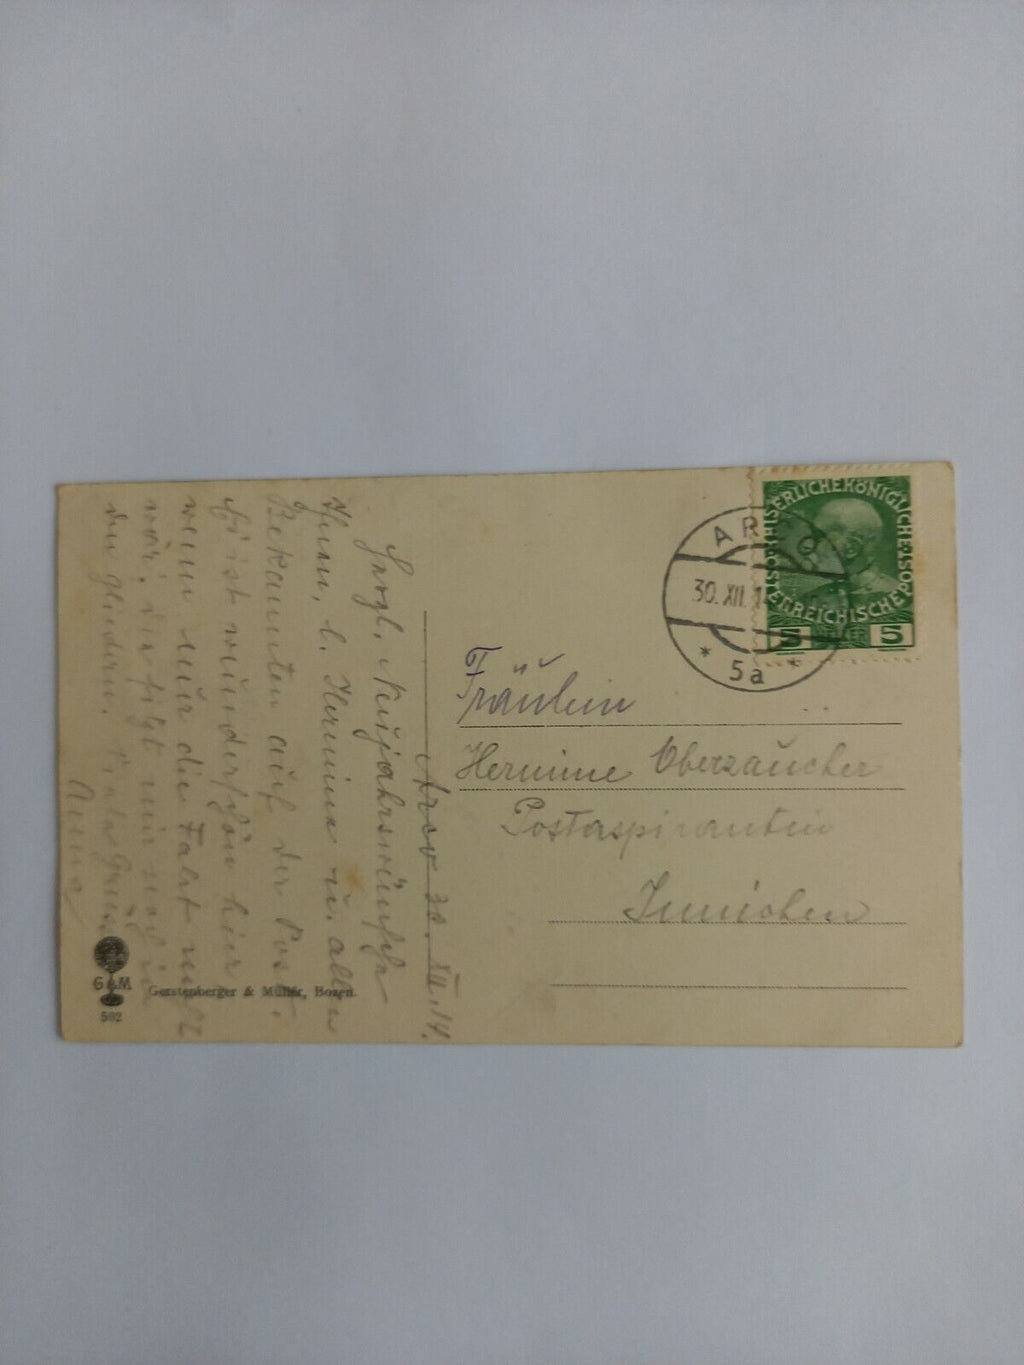 Arco 30. XII. 14.
Herzl. Neujahrswünsche
Ihnen, l. Hermine u. allen
Bekannten auf der Post.
Es ist wunderschön hier
wenn nur die Fahrt nicht
wär! Die sitzt mir noch in
den Gliedern. Grüsse
Anna
Fräulein
Hermine Oberzaucher
Postaspirantin
Innichen
ARCO
30. XII. 1
* 5a *
KAISERLICHEKÖNIGLICHE
ÖSTERREICHISCHE POST
5 HELLER 5
G M
562
Gerstenberger & Müller, Bozen.